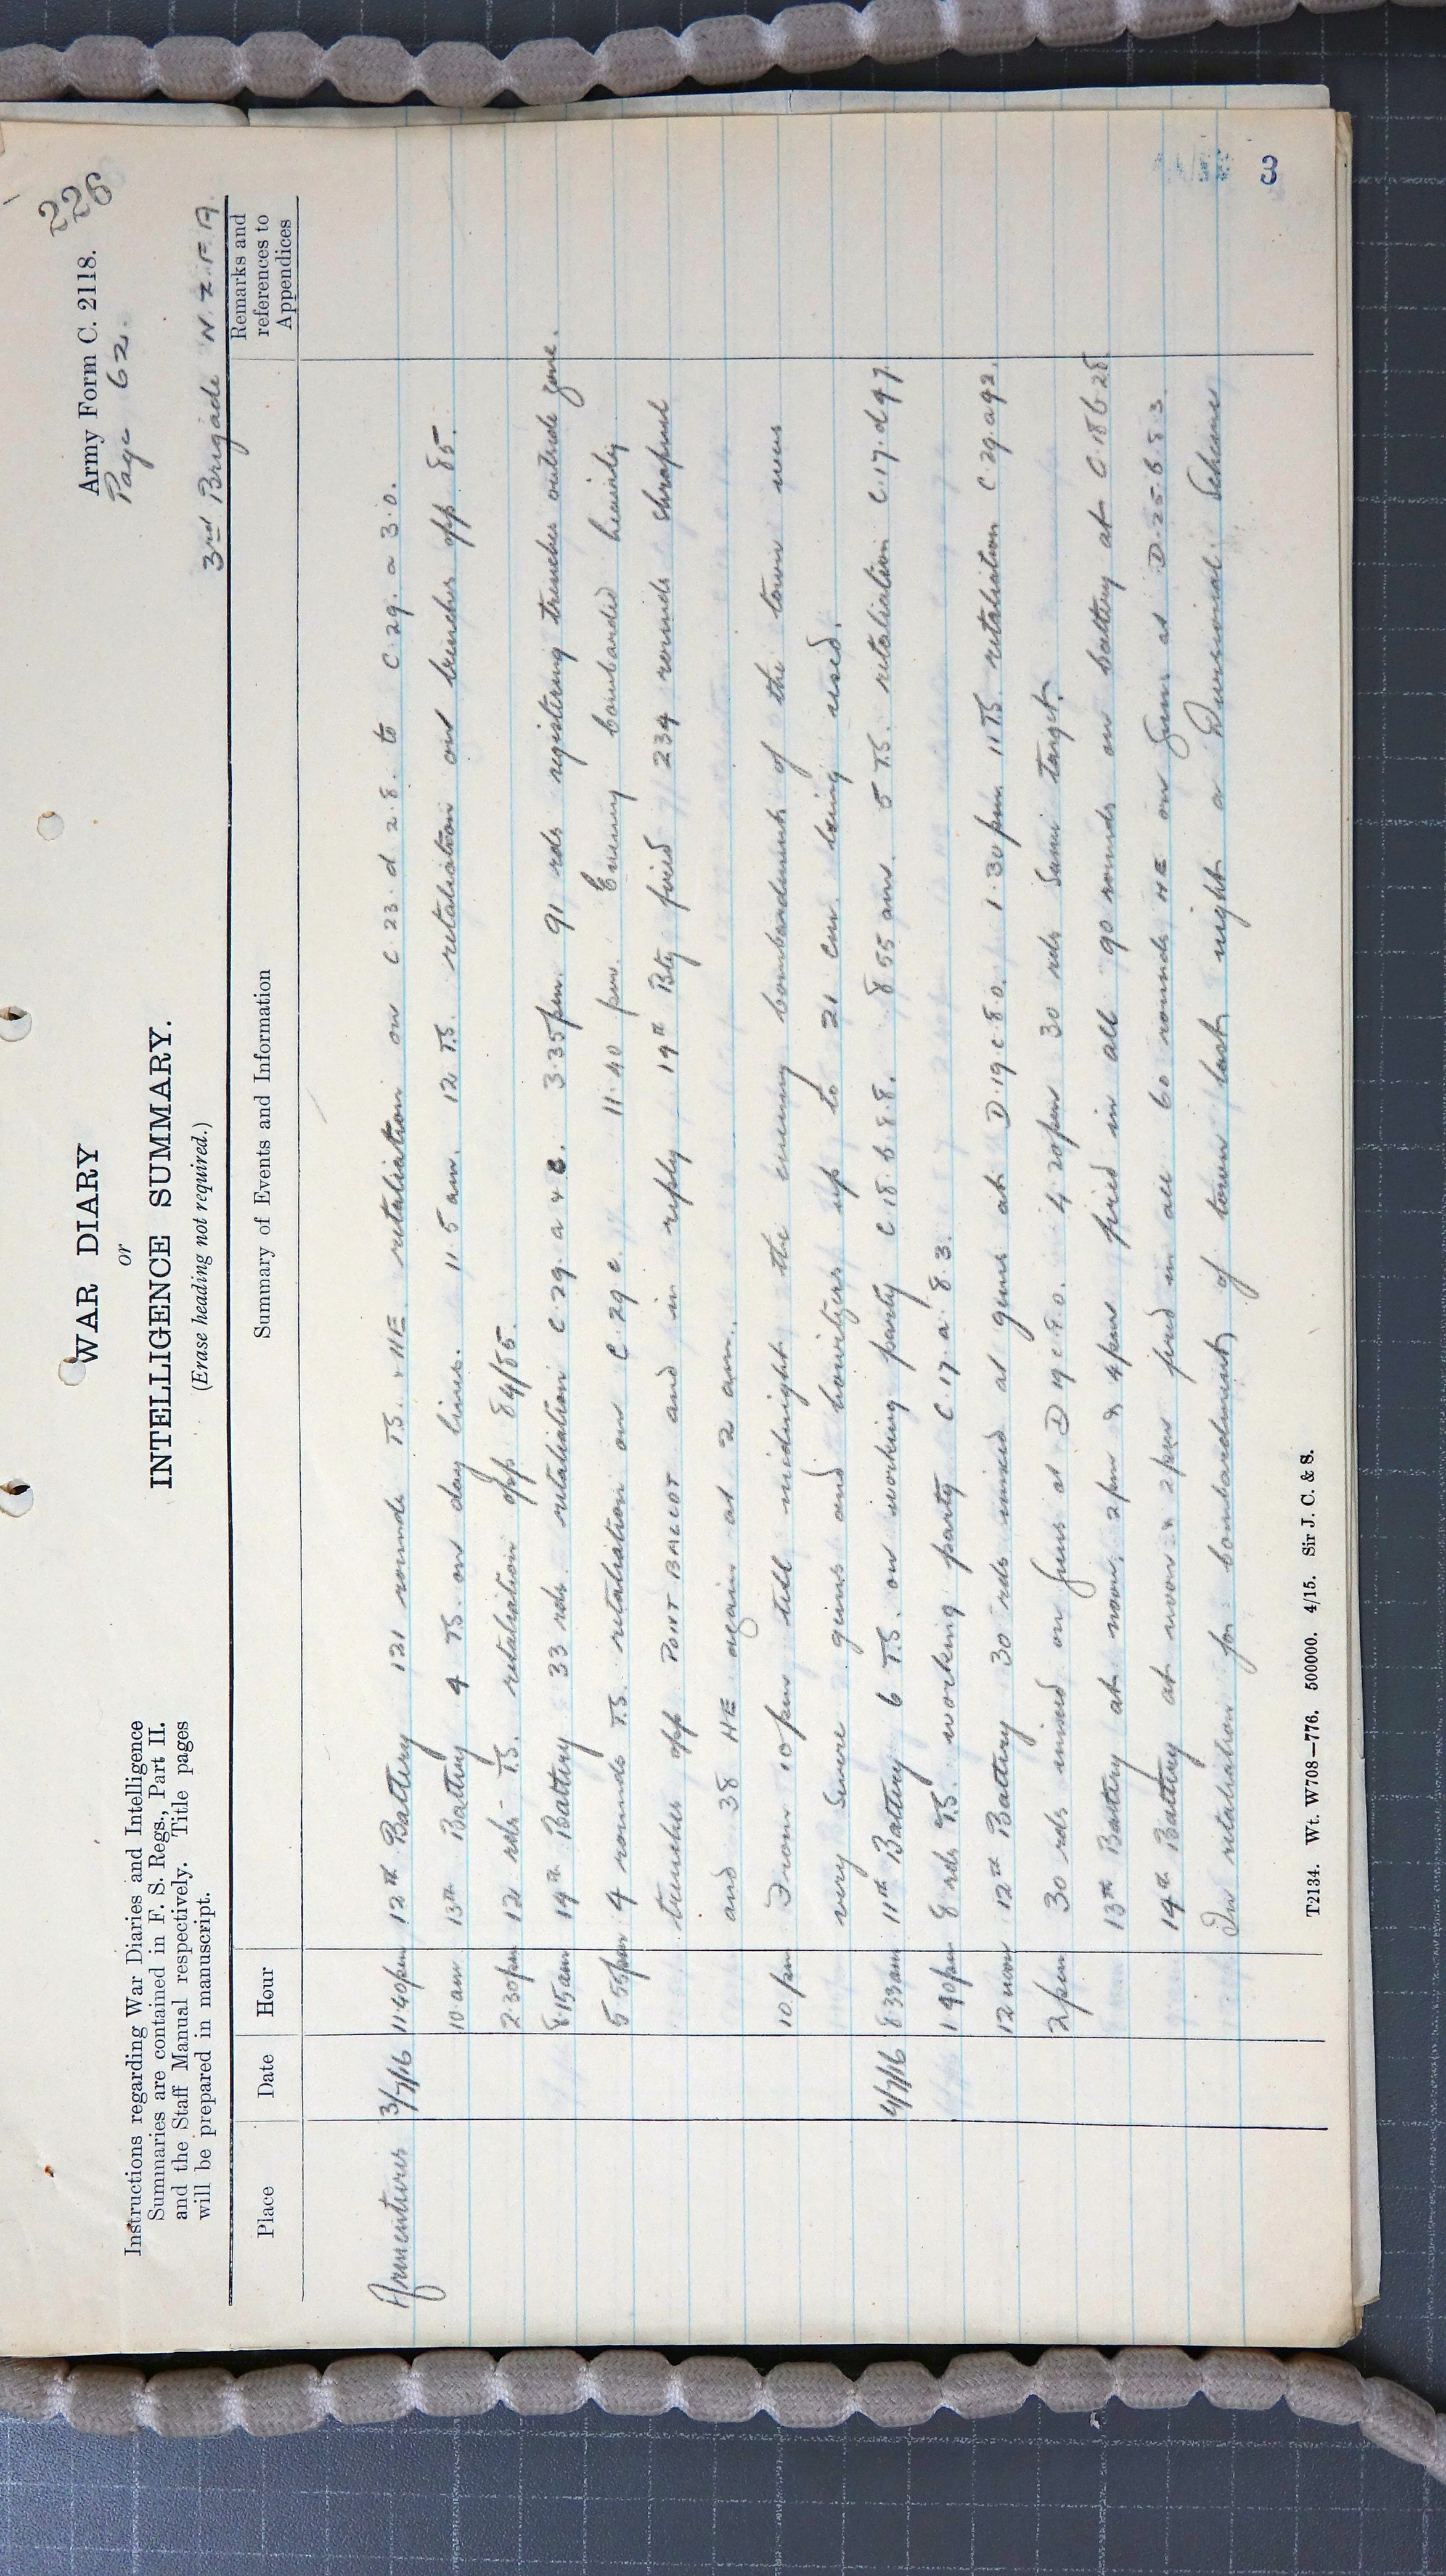 226
Army Form C. 2118.
Page 62.
WAR DIARY
or
INTELLIGENCE SUMMARY.
(Erase heading not required.)
Instructions regarding War Diaries and Intelligence
Summaries are contained in F. S. Regs., Part II.
and the Staff Manual respectively. Title pages
will be prepared in manuscript.
3rd Brigade N.Z.F.A.
Place Date Hour Summary of Events and Information Remarks and references to Appendices
Armentieres 3/7/16 11.40pm 12th Battery 121 rounds TS. & HE. retaliation on C.23.d 2.8. to C.29.a 3.0.
10 am 13th Battery 4 TS. on day lines. 11.5 am. 12 TS. retaliation on trenches opp 85.
2.30pm 12 rds. TS. retaliation opp 84/85.
8.15am 14th Battery 33 rds. retaliation C.29.a & c. 3.35pm. 91 rds registering trenches outside zone.
5.55pm 4 rounds T.S. retaliation on C.29.c. 11.40 pm. Enemy bombarded heavily
trenches opp PONT BALLOT and in reply 14th Bty fired 234 rounds shrapnel
and 38 HE again at 2 am.
10 pm From 10pm till midnight the enemy bombardment of the town was
very severe guns and howitzers up to 21 cm. being used.
4/7/16 8.33am 11th Battery 6 T.S. on working party C.18.b.8.8. 8.55 am. 5 T.S. retaliation C.17.d 4 7.
1 40pm 8 rds T.S. working party C.17.a.8.3.
12 noon 12th Battery 30 rds mixed at guns at D.19.c.8.0. 1.30pm 11 TS retaliation C.29.a 9 2.
2pm 30 rds mixed on guns at D 19 c.8.0. 4.20pm 30 rds same target.
13th Battery at noon, 2pm & 4pm fired in all 90 rounds on battery at C.18 b 28
14th Battery at noon & 2pm fired in all 60 rounds HE on guns at D.25.b.5.3.
In retaliation for bombardment of town last night a Divisional Scheme
T2134. Wt. W708—776. 500000. 4/15. Sir J. C. & S.
3